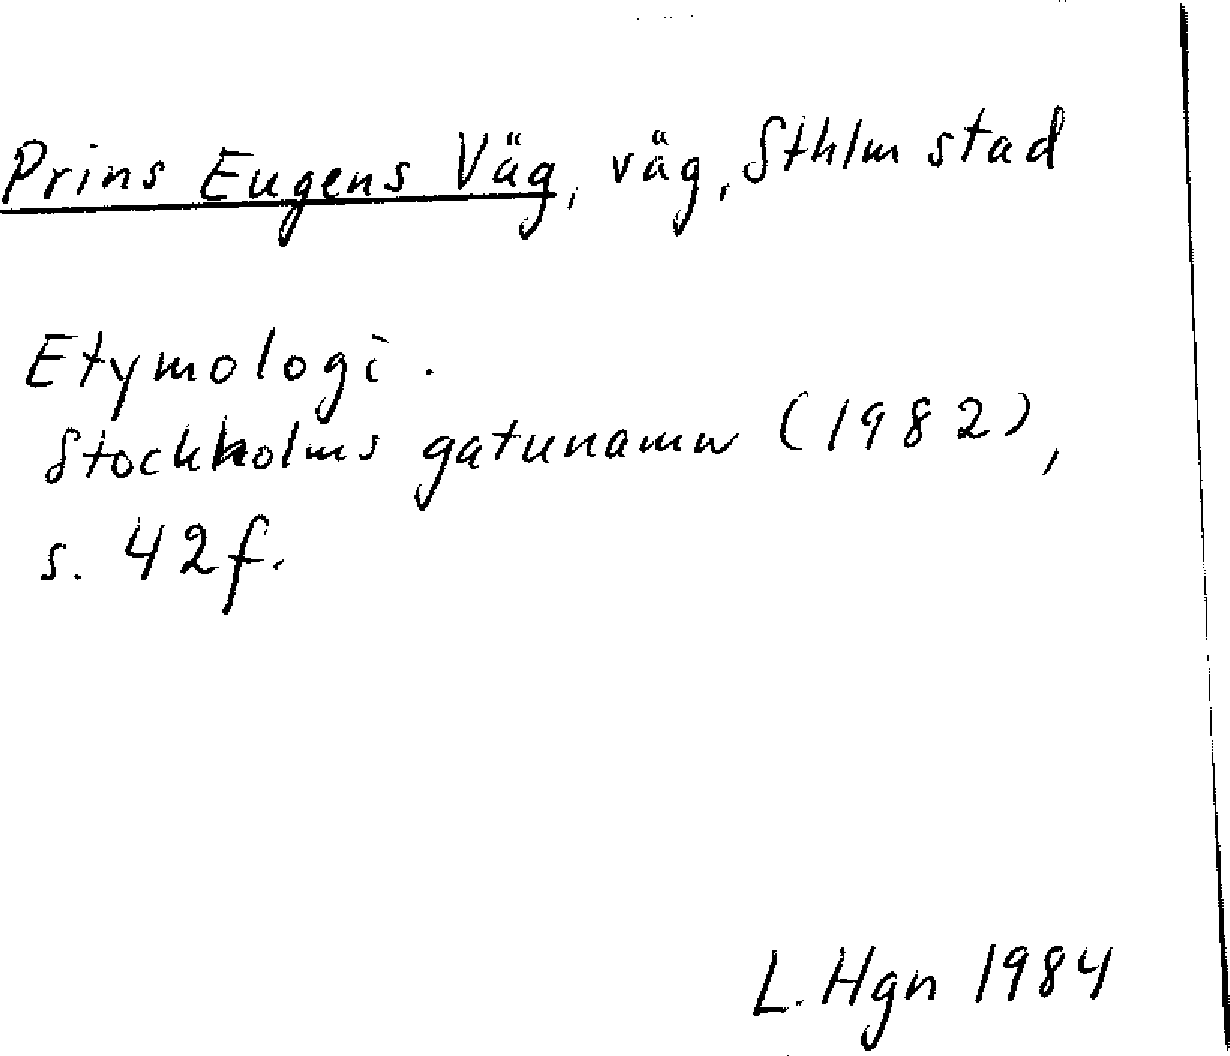 Prins Eugens Väg, väg, Sthlm stad
Etymologi.
Stockholms gatunamn (1982),
s. 42f.
L. Hgn 1984